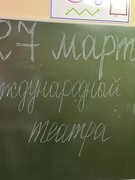 27 март
ждународный
театра